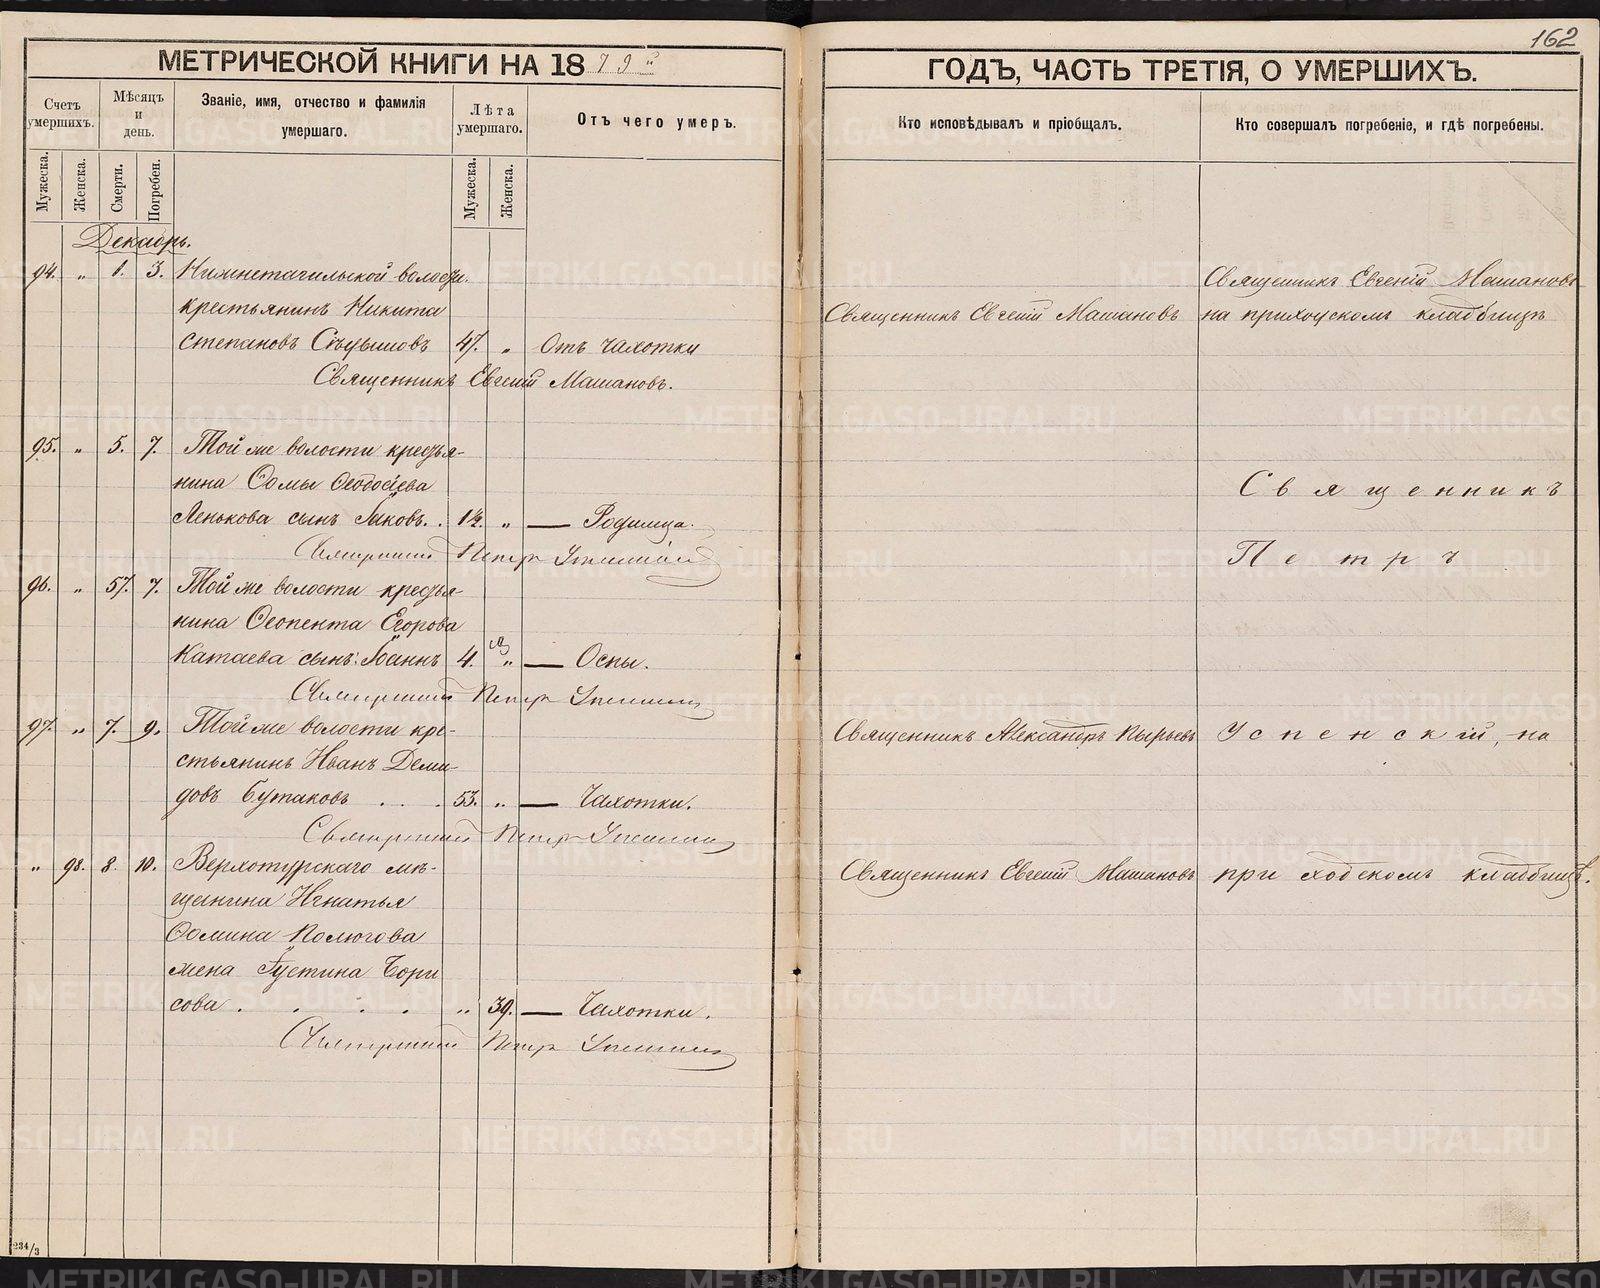 162
МЕТРИЧЕСКОЙ КНИГИ НА 1879й
ГОДЪ, ЧАСТЬ ТРЕТІЯ, О УМЕРШИХЪ.
Счетъ умершихъ.
Мѣсяцъ и день.
Званіе, имя, отчество и фамилія умершаго.
Лѣта умершаго.
Отъ чего умеръ.
Кто исповѣдывалъ и пріобщалъ.
Кто совершалъ погребеніе, и гдѣ погребены.
Мужеска.
Женска.
Смерти.
Погребен.
Мужеска.
Женска.
Декабрь.
94. „ 1. 3. Нижнетагильской волости
крестьянинъ Никита
Степановъ 47. „ Отъ чахотки
Священникъ Евгеній Машановъ.
Священникъ Евгеній Машановъ
Священникъ Евгеній Машановъ
на приходскомъ кладбищѣ
95. „ 5. 7. Той же волости крестья-
нина Ѳомы Ѳеодосіева
Ленькова сынъ Іаковъ. . 1½. „ — Родимца.
Священникъ Петръ Успенскій
96. „ 5. 7. Той же волости крестья-
нина Ѳеопента Егорова
Катаева сынъ Іоаннъ 4. „ — Оспы.
Священникъ Петръ Успенскій
97. „ 7. 9. Той же волости кре-
стьянинъ Иванъ Деми-
довъ Бутаковъ . . . 53. „ — Чахотки.
Священникъ Петръ Успенскій
Священникъ Александръ Пырьевъ
„ 98. 8. 10. Верхотурскаго мѣ-
щанина Игнатья
Ѳомина Полюгова
жена Іустина Бори
сова . . . . „ 39. — Чахотки.
Священникъ Петръ Успенскій
Священникъ Евгеній Машановъ
Священникъ
Петръ
Успенскій, на
приходскомъ кладбищѣ.
234/3
METRIKI.GASO-URAL.RU